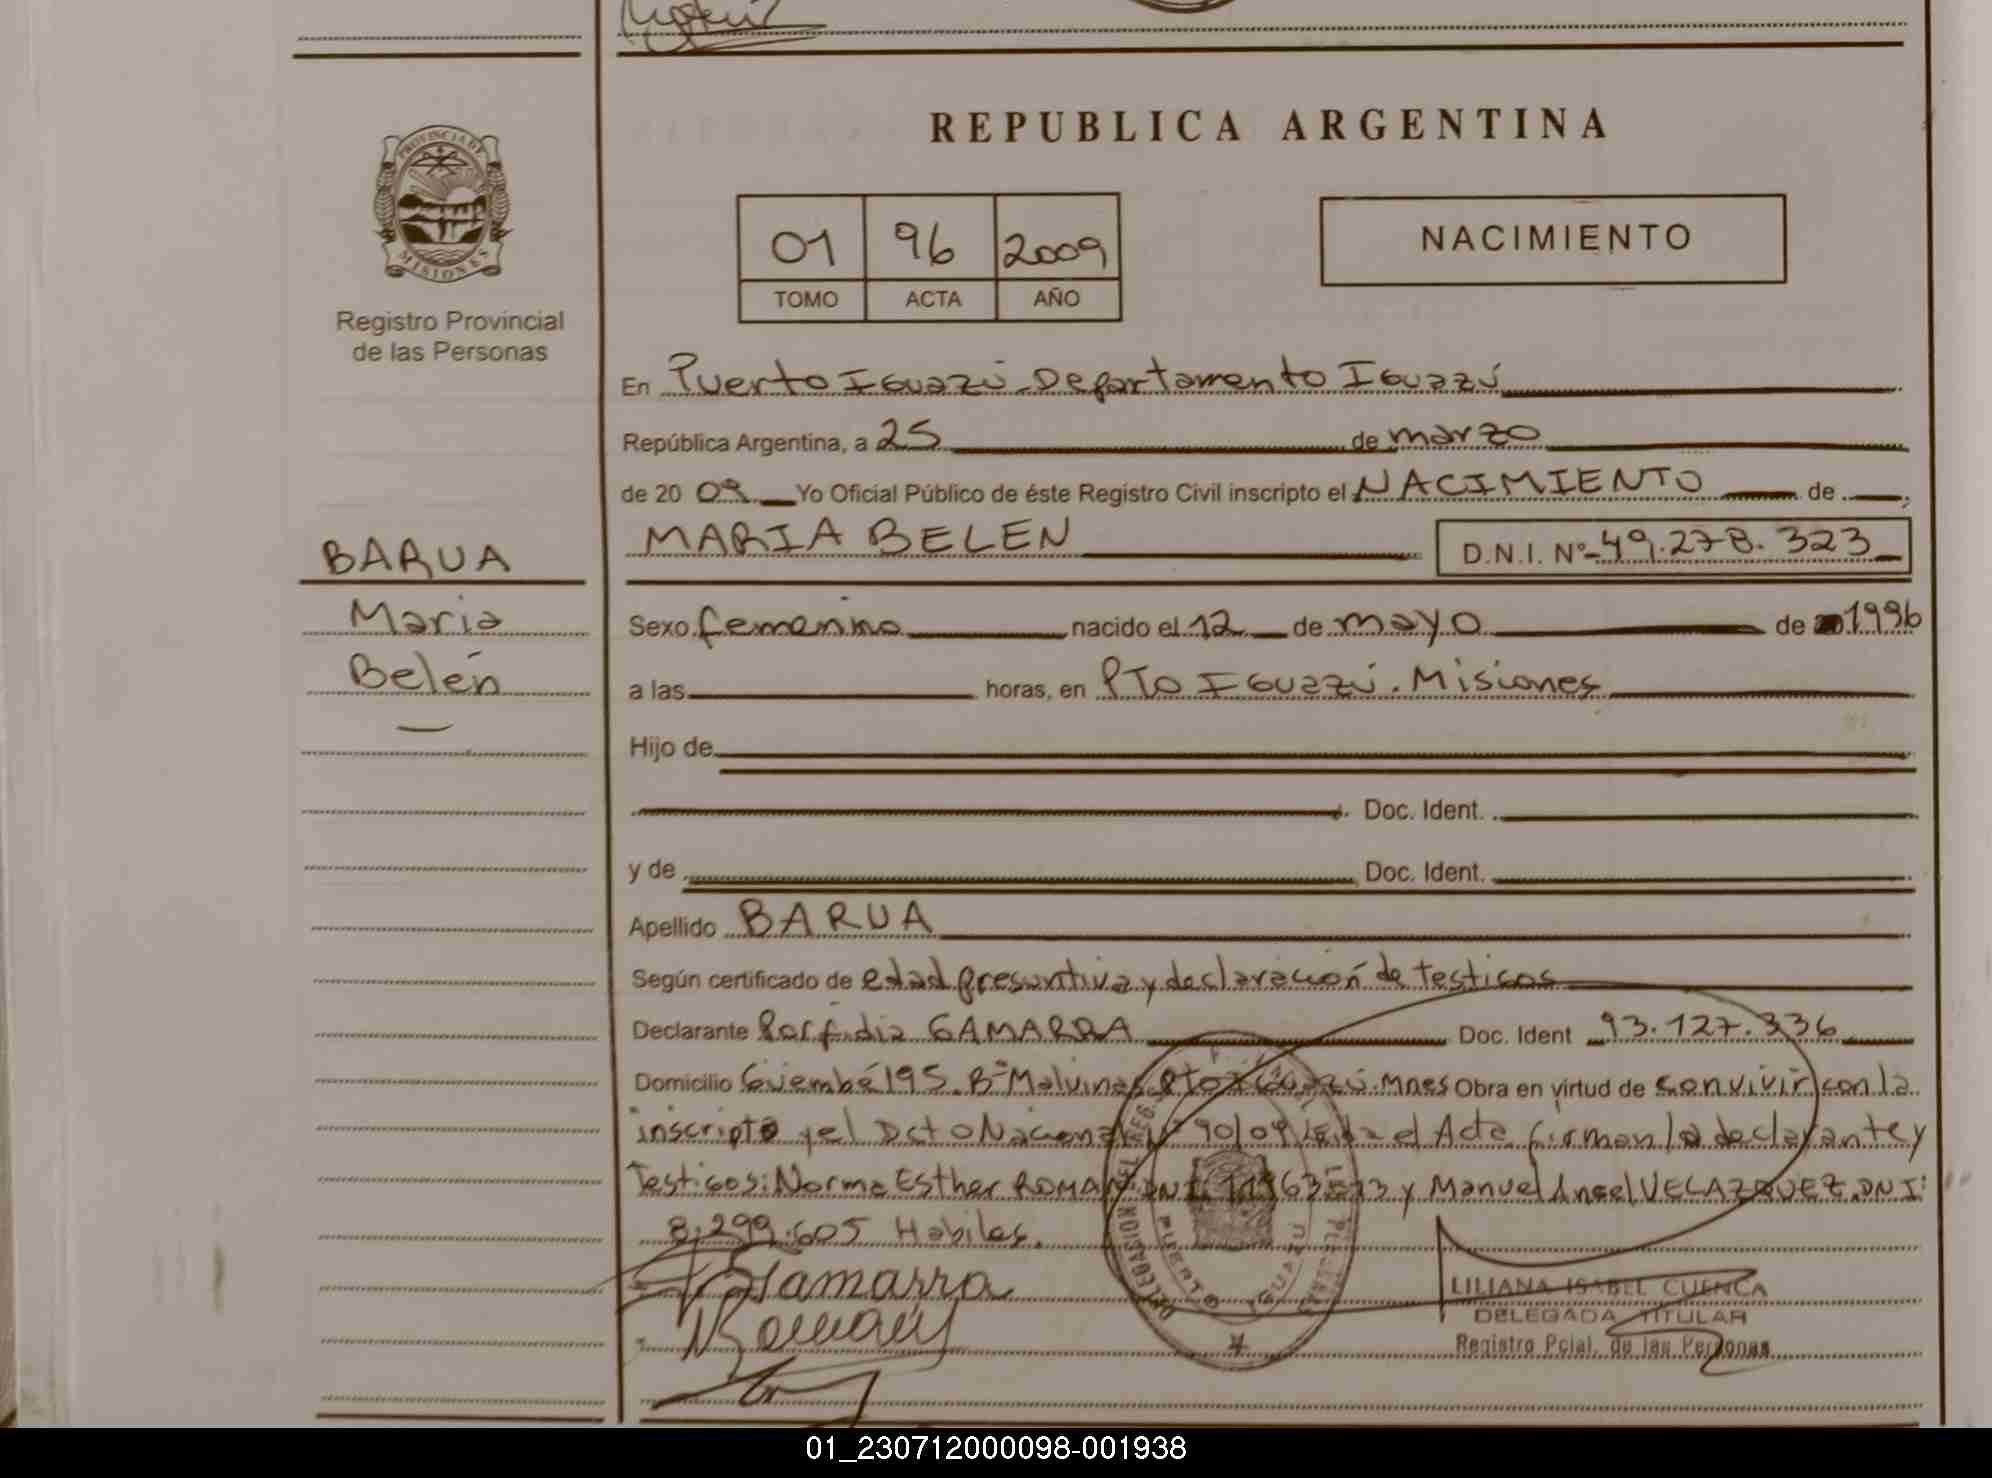 REPUBLICA ARGENTINA
PROVINCIA DE MISIONES
Registro Provincial
de las Personas
01 96 2009
TOMO ACTA AÑO
NACIMIENTO
En Puerto Iguazú - Departamento Iguazú
República Argentina, a 25 de marzo
de 20 09 Yo Oficial Público de éste Registro Civil inscripto el NACIMIENTO de
MARIA BELEN D.N.I. Nº 49.278.323
BARUA
Maria
Belén
Sexo femenino nacido el 12 de mayo de 1996
a las horas, en Pto Iguazú. Misiones
Hijo de
Doc. Ident.
y de Doc. Ident.
Apellido BARUA
Según certificado de edad presuntiva y declaración de testigos
Declarante Porfidia GAMARRA Doc. Ident 93.127.336
Domicilio Guembé 195. Bº Malvinas Pto Iguazú. Mnes Obra en virtud de convivir con la
inscripta y el Dcto Nacional Nº 90/09 Leída el Acta firman la declarante y
Testigos: Norma Esther ROMAN DNI y Manuel Angel VELAZQUEZ DNI:
8.299.605 Habiles.
Gamarra
Roman
DELEGACION DEL REG. PCIAL. DE LAS PERSONAS
PUERTO IGUAZU
LILIANA ISABEL CUENCA
DELEGADA TITULAR
Registro Pcial. de las Personas
01_230712000098-001938